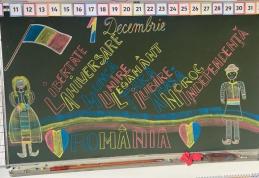 11 12 13 14 15 16 17 18 19 20 21 22 23 24 25 26 27 28 29 30 31
1 Decembrie
LIBERTATE
ANIVERSARE
UNIRE
LEGĂMÂNT
IUBIRE
NOROC
INDEPENDENȚA
ROMÂNIA